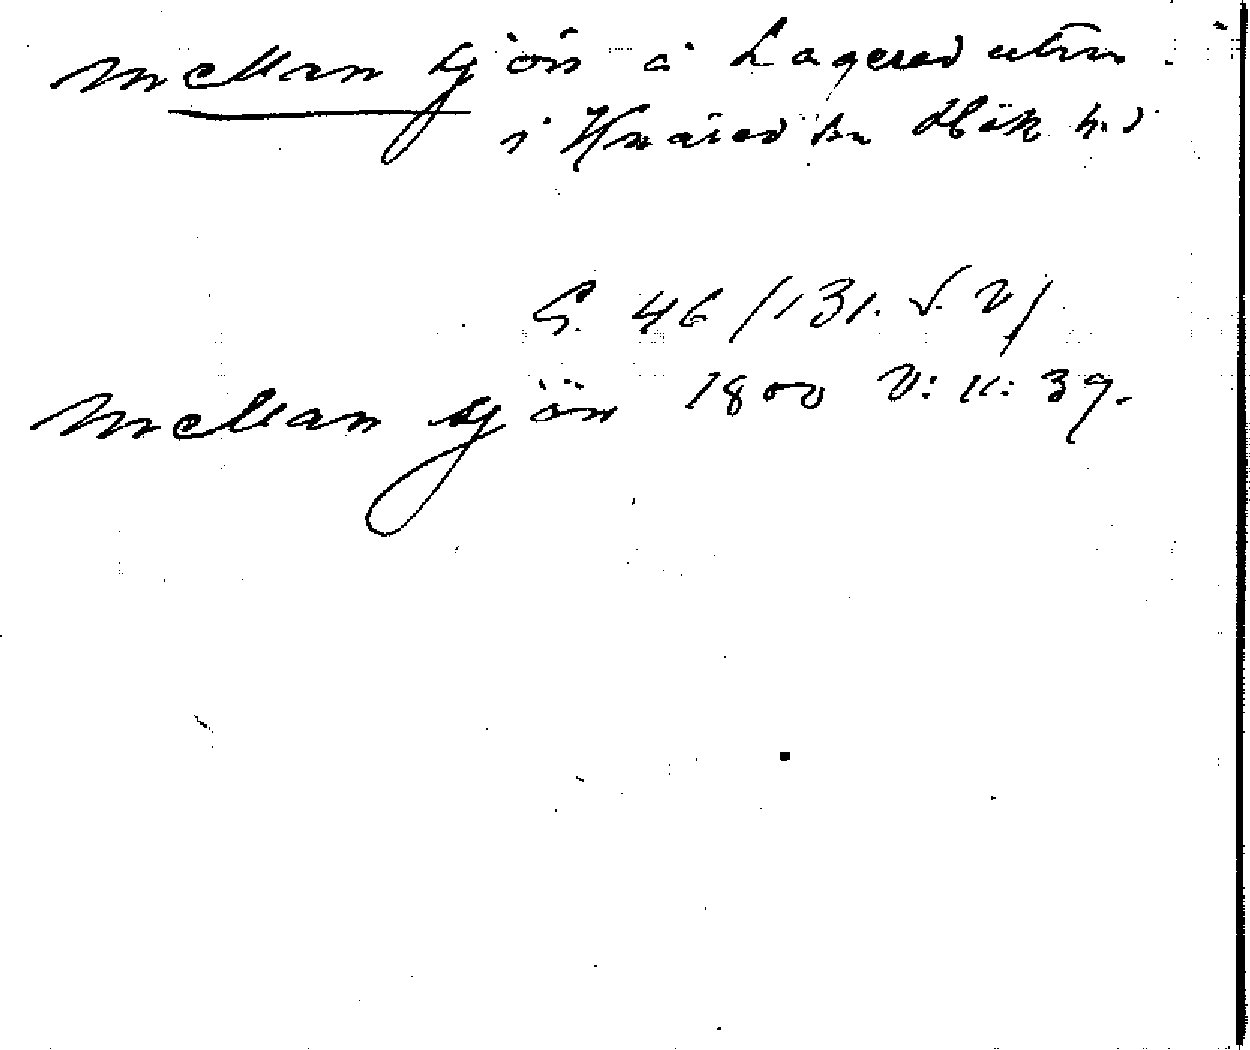 Mellan sjön å Lagered utm.
i Knäred sn Hök h.d
G. 46 (131. V. 2)
Mellan sjön 1800 2: K: 39.